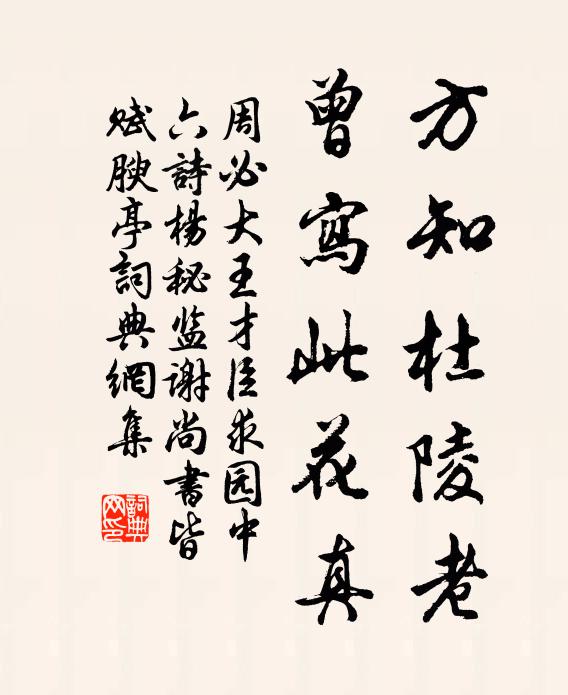 方知杜陵老
曾寫此花真
周必大王才臣求园中
六詩楊秘监谢尚書皆
赋腴亭詞典網集
詞典
网印